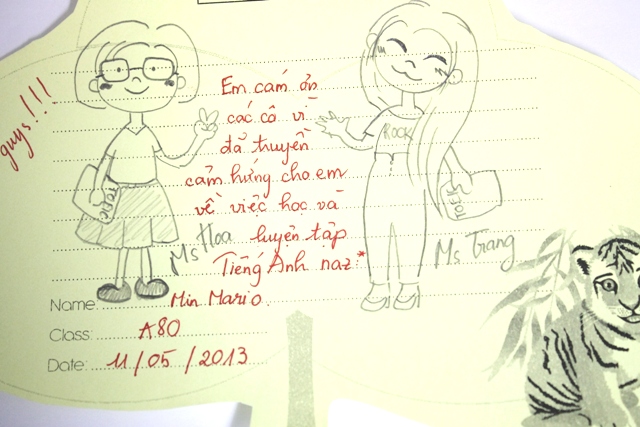 guys!!!
Em cám ơn
các cô vì
đã truyền
cảm hứng cho em
về việc học và
luyện tập
Tiếng Anh naz*
ROCK
TOEIC
TOEIC
Ms Hoa
Ms Trang
Name: Min Mario.
Class: A80
Date: 11/05/2013